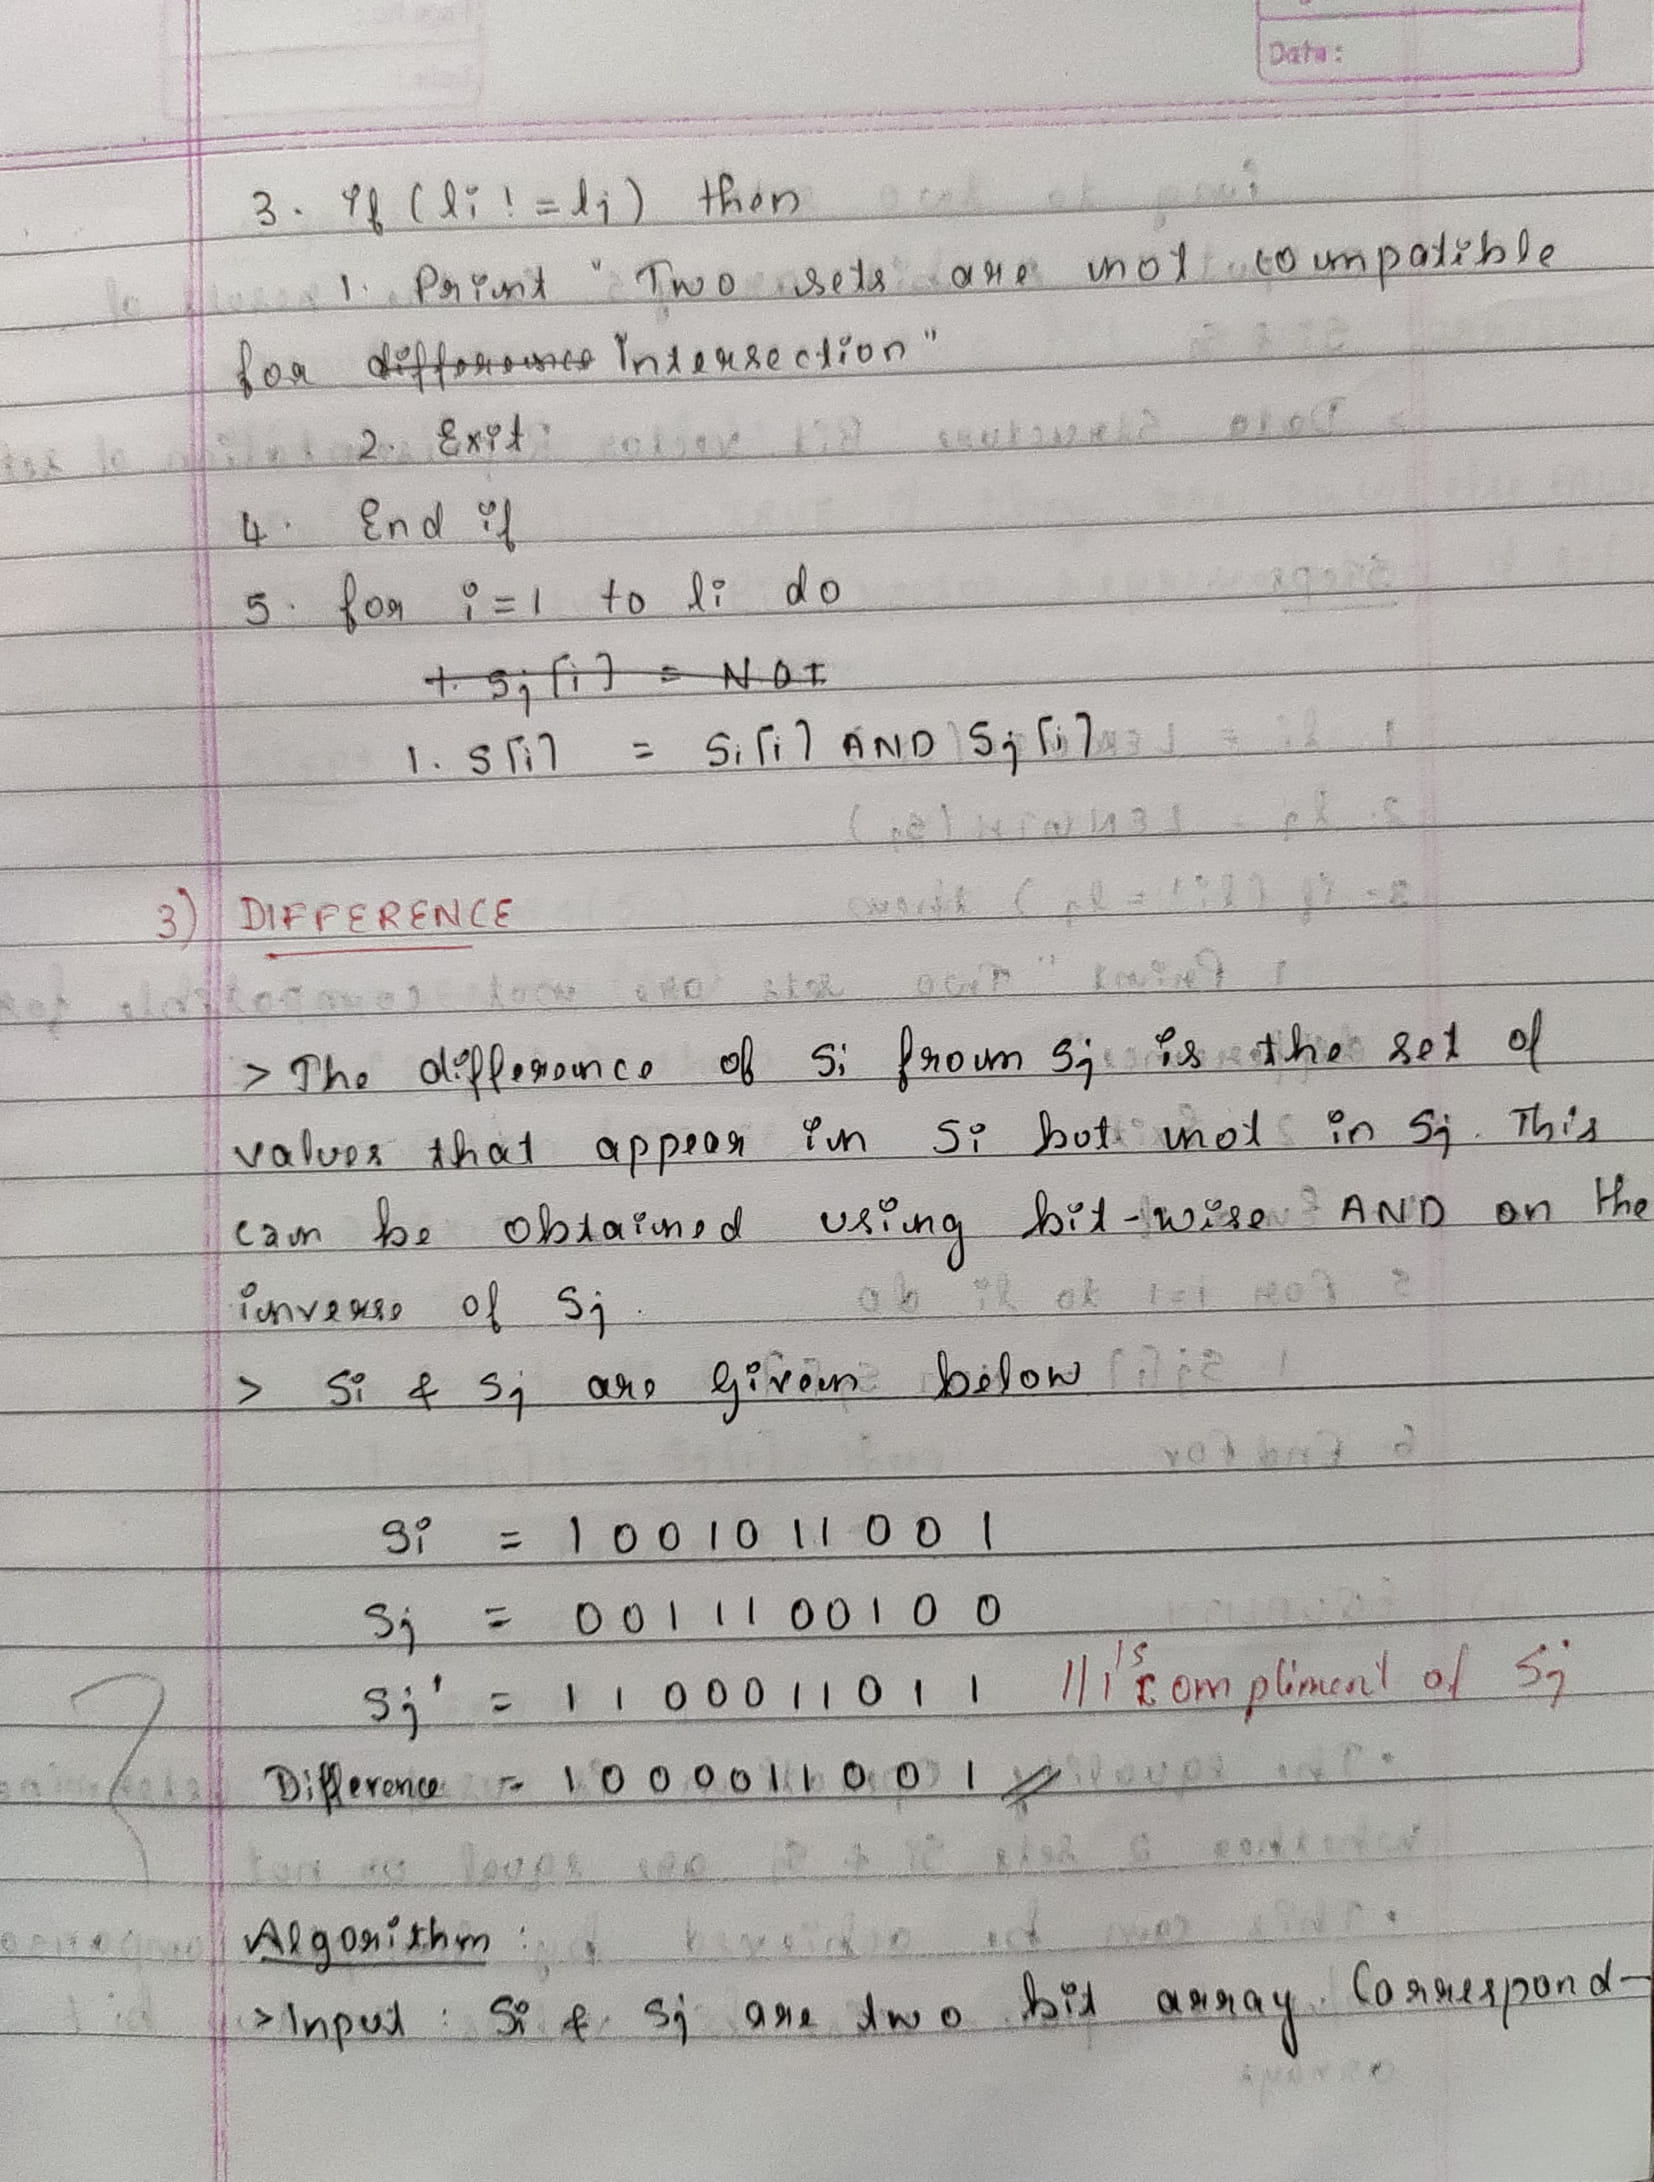 Date:
3. if (li != lj) then
1. Print "Two sets are not compatible
for difference Intersection"
2. Exit
4. End if
5. for i=1 to li do
1. Sj[i] = NOT
1. S[i] = Si[i] AND Sj[i]
3) DIFFERENCE
> The difference of Si from Sj is the set of
values that appear in Si but not in Sj. This
can be obtained using bit-wise AND on the
inverse of Sj.
> Si & Sj are given below
Si = 1 0 0 1 0 1 1 0 0 1
Sj = 0 0 1 1 1 0 0 1 0 0
Sj' = 1 1 0 0 0 1 1 0 1 1 // 1's compliment of Sj
Difference = 1 0 0 0 0 1 1 0 0 1
Algorithm :
> Input : Si & Sj are two bit array. Correspond-